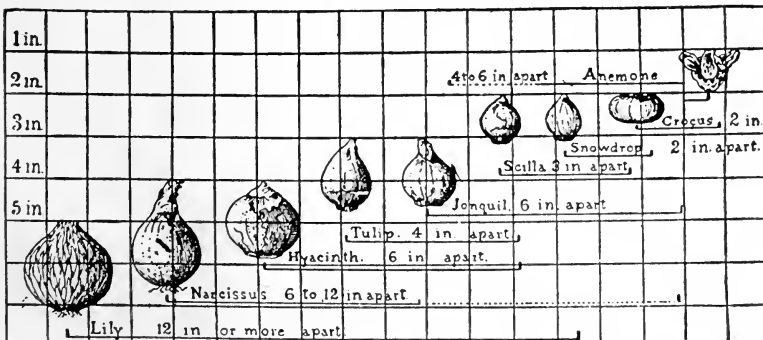 1 in.
2 in.
4 to 6 in apart Anemone
3 in.
Crocus 2 in.
Snowdrop 2 in. apart.
4 in.
Scilla 3 in apart
5 in
Jonquil. 6 in. apart
Tulip. 4 in. apart
Hyacinth. 6 in apart.
Narcissus 6 to 12 in apart.
Lily 12 in or more apart